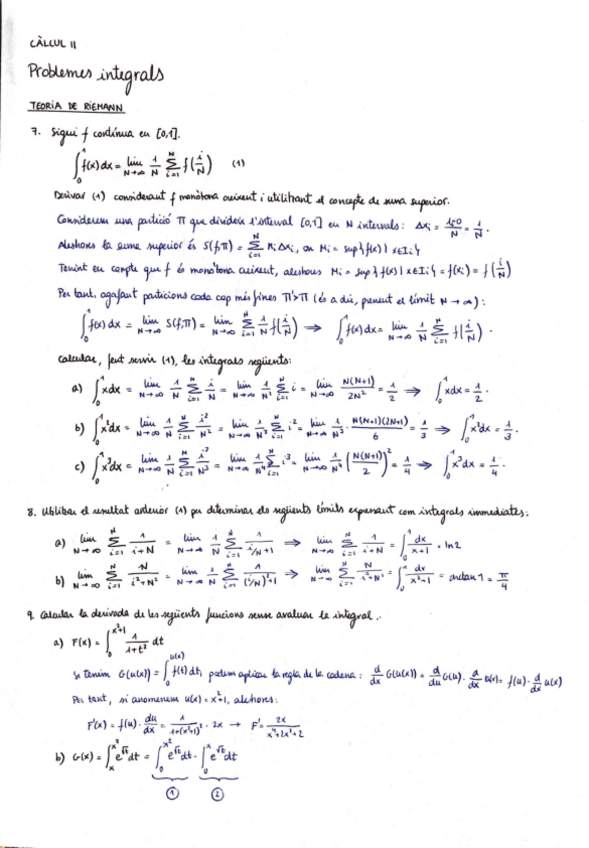 CÀLCUL II
Problemes integrals
TEORIA DE RIEMANN
7. Sigui f contínua en [0,1].
∫₀¹ f(x)dx = lim_{N→∞} 1/N Σ_{i=1}^{N} f(i/N) (1)
Derivar (1) considerant f monòtona creixent i utilitzant el concepte de suma superior.
Considerem una partició Π que divideix l'interval [0,1] en N intervals: Δxᵢ = (1-0)/N = 1/N.
Aleshores la suma superior és S(f,Π) = Σ_{i=1}^{N} Mᵢ Δxᵢ, on Mᵢ = sup{f(x) | x∈Iᵢ}
Tenint en compte que f és monòtona creixent, aleshores Mᵢ = sup{f(x) | x∈Iᵢ} = f(xᵢ) = f(i/N)
Per tant, agafant particions cada cop més fines Π'>Π (és a dir, prenent el límit N→∞):
∫₀¹ f(x)dx = lim_{N→∞} S(f,Π) = lim_{N→∞} Σ_{i=1}^{N} 1/N f(i/N) → ∫₀¹ f(x)dx = lim_{N→∞} 1/N Σ_{i=1}^{N} f(i/N).
Calcular, fent servir (1), les integrals següents:
a) ∫₀¹ xdx = lim_{N→∞} 1/N Σ_{i=1}^{N} i/N = lim_{N→∞} 1/N² Σ_{i=1}^{N} i = lim_{N→∞} N(N+1)/2N² = 1/2 ⇒ ∫₀¹ xdx = 1/2.
b) ∫₀¹ x²dx = lim_{N→∞} 1/N Σ_{i=1}^{N} i²/N² = lim_{N→∞} 1/N³ Σ_{i=1}^{N} i² = lim_{N→∞} 1/N³ · N(N+1)(2N+1)/6 = 1/3 ⇒ ∫₀¹ x²dx = 1/3.
c) ∫₀¹ x³dx = lim_{N→∞} 1/N Σ_{i=1}^{N} i³/N³ = lim_{N→∞} 1/N⁴ Σ_{i=1}^{N} i³ = lim_{N→∞} 1/N⁴ (N(N+1)/2)² = 1/4 ⇒ ∫₀¹ x³dx = 1/4.
8. Utilitzar el resultat anterior (1) per determinar els següents límits expressant com integrals immediates:
a) lim_{N→∞} Σ_{i=1}^{N} 1/(i+N) = lim_{N→∞} 1/N Σ_{i=1}^{N} 1/(i/N+1) ⇒ lim_{N→∞} Σ_{i=1}^{N} 1/(i+N) = ∫₀¹ dx/(x+1) = ln2
b) lim_{N→∞} Σ_{i=1}^{N} N/(i²+N²) = lim_{N→∞} 1/N Σ_{i=1}^{N} 1/((i/N)²+1) ⇒ lim_{N→∞} Σ_{i=1}^{N} N/(i²+N²) = ∫₀¹ dx/(x²+1) = arctan 1 = π/4
9. Calcular la derivada de les següents funcions sense avaluar la integral.
a) F(x) = ∫₀^{x²+1} 1/(1+t²) dt
Si tenim G(u(x)) = ∫₀^{u(x)} f(t)dt, podem aplicar la regla de la cadena: d/dx G(u(x)) = d/du G(u) · d/dx u(x) = f(u) · d/dx u(x)
Per tant, si anomenem u(x) = x²+1, aleshores:
F'(x) = f(u) · du/dx = 1/(1+(x²+1)²) · 2x → F' = 2x/(x⁴+2x²+2)
b) G(x) = ∫ₓ^{x²} e^{√t}dt = ∫₀^{x²} e^{√t}dt - ∫₀^{x} e^{√t}dt
① ②